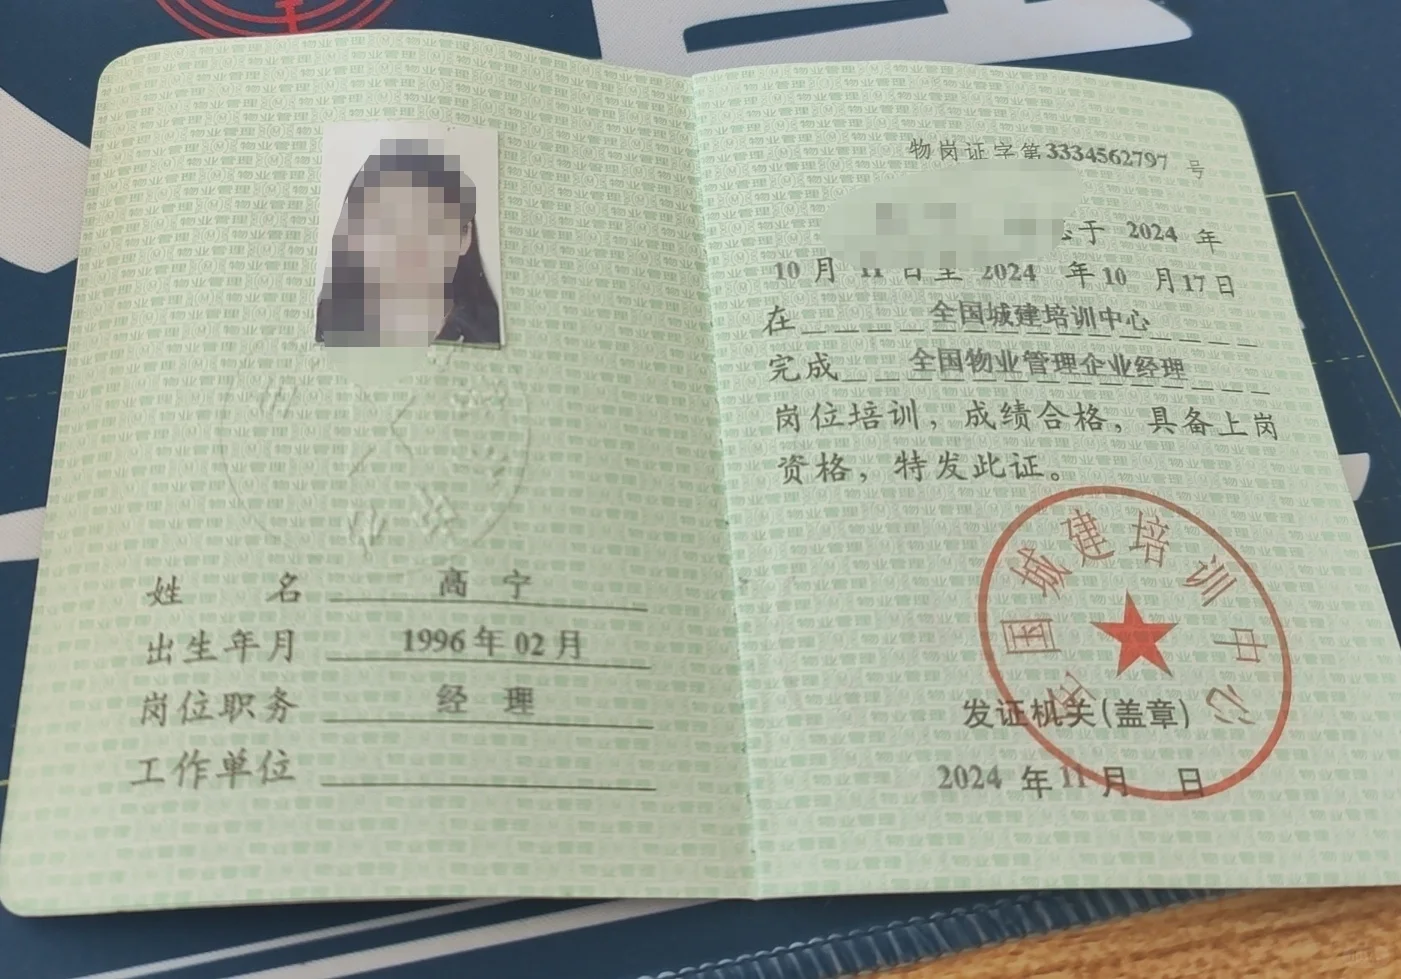 姓 名 高 宁
出生年月 1996年02月
岗位职务 经 理
工作单位
物岗证字第3334562797 号
于 2024 年
10 月 11 日至 2024 年 10 月 17 日
在 全国城建培训中心
完成 全国物业管理企业经理
岗位培训，成绩合格，具备上岗
资格，特发此证。
全国城建培训中心
发证机关(盖章)
2024 年 11 月 日